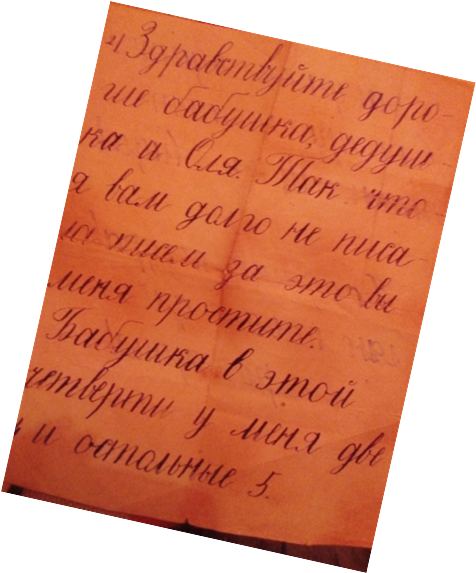 Здравствуйте доро-
гие бабушка, дедуш-
ка и Оля. Так что
я вам долго не писа-
ла писем за это вы
меня простите.
Бабушка в этой
четверти у меня две
и остольные 5.